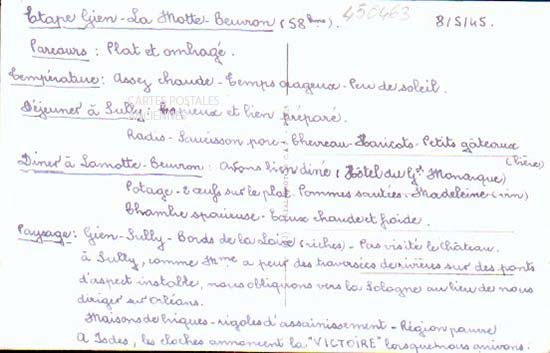 Etape Gien - La Motte-Beuvron (58 kms). 450463 8/5/45.
Parcours : Plat et ombragé.
Température : Assez chaude - Temps orageux - Peu de soleil.
CARTES POSTALES
Déjeuner à Sully - Copieux et bien préparé.
Radis - Saucisson porc - Chevreau - Haricots - Petits gâteaux
(bière)
Dîner à Lamotte-Beuvron : Avons bien diné (Hôtel du Gd Monarque)
Potage - 2 oeufs sur le plat. Pommes sautées. Madeleine (vin)
Chambre spacieuse - Eaux chaude et froide.
Paysage : Gien - Sully - Bords de la Loire (riches) - Pas visité le Château.
à Sully, comme Mme a peur des traversées de rivières sur des ponts
d'aspect instable, nous obliquons vers la Sologne au lieu de nous
diriger sur Orléans.
Maisons de briques - rigoles d'assainissement - Région pauvre
A Isdes, les cloches annoncent la "VICTOIRE" lorsque nous arrivons.